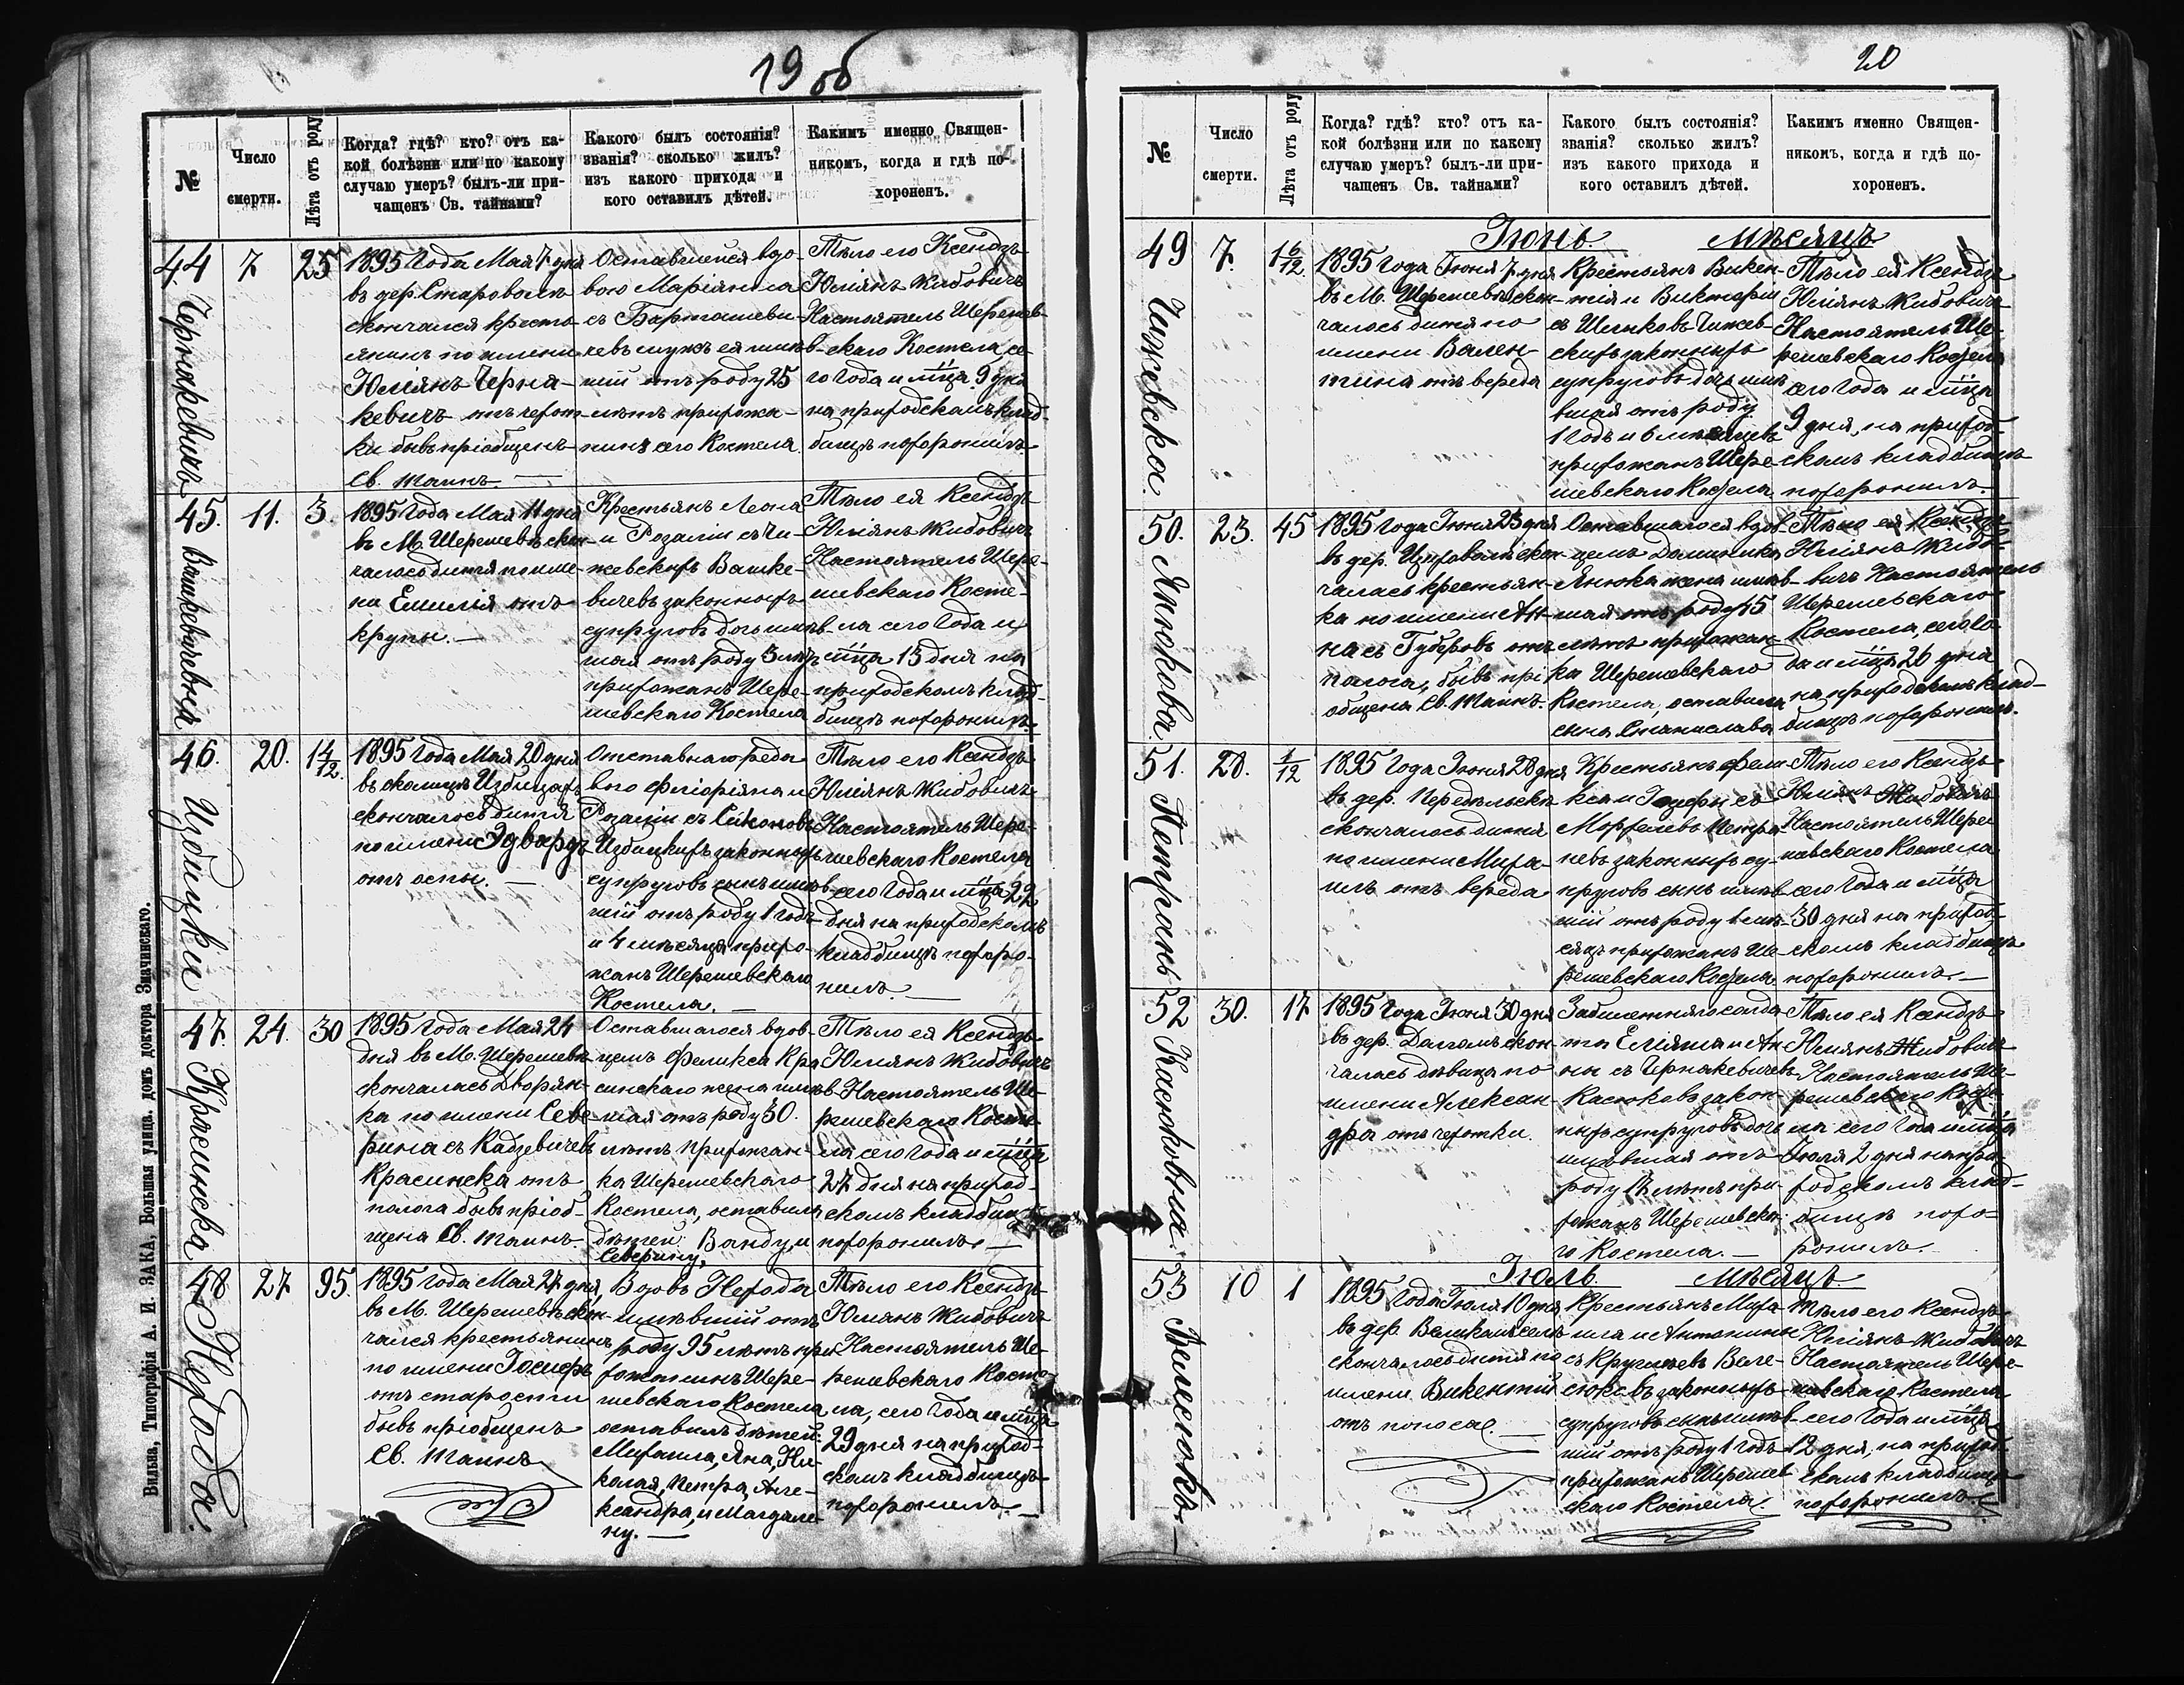 19 об
№
Число
смерти.
Лѣта отъ роду
Когда? гдѣ? кто? отъ ка-
кой болѣзни или по какому
случаю умеръ? былъ-ли при-
чащенъ Св. тайнами?
Какого былъ состоянія?
званія? сколько жилъ?
изъ какого прихода и
кого оставилъ дѣтей.
Какимъ именно Священ-
никомъ, когда и гдѣ по-
хороненъ.
44
Чернякевичъ
7
25
1895 Года Мая 7 дня
въ дер. Староволѣ
скончался кресть-
янинъ по имени
Юліянъ Черня-
кевичъ отъ чехот-
ки бывъ пріобщенъ
Св. таинъ.
Оставшейся вдо-
вою Маріянны
съ Барташеви-
чевъ мужъ ея имѣв-
шій отъ роду 25
лѣтъ прихожа-
нинъ сего Костела
Тѣло его Ксендзъ
Юліянъ Жибовичъ
Настоятель Шерешев-
скаго Костела, се-
го Года и мца 9 дня
на приходскомъ клад-
бищѣ похоронилъ
45.
Вашкевичевна
11.
3.
1895 Года Мая 11 дня
въ М. Шерешевѣ скон-
чалось дитя по име-
ни Емилія отъ
крупы.
Крестьянъ Леона
и Розаліи съ Чи-
жевскихъ Вашке-
вичевъ законныхъ
супруговъ дочь имѣв-
шая отъ роду 3 лѣтъ
прихожанъ Шере-
шевскаго Костела
Тѣло ея Ксендзъ
Юліянъ Жибовичъ
Настоятель Шере-
шевскаго Косте-
ла сего Года и
мца 13 дня на
приходскомъ клад-
бищѣ похоронилъ.
46.
Избицки
20.
1 4/12.
1895 Года Мая 20 дня
въ околицѣ Избицахъ
скончалось дитя
по имени Эдвардъ
отъ оспы.
Отставнаго рядо-
ваго Флоріяна и
Розаліи съ Сіконовъ
Избицкихъ законныхъ
супруговъ сынъ имѣв-
шій отъ роду 1 годъ
и 4 мѣсяца прихо-
жанъ Шерешевскаго
Костела.
Тѣло его Ксендзъ
Юліянъ Жибовичъ
Настоятель Шере-
шевскаго Костела
сего Года и мца 22
дня на приходскомъ
кладбищѣ похоро-
нилъ.
47.
Красинска
24.
30
1895 Года Мая 24
дня въ М. Шерешевѣ
скончалась Дворян-
ка по имени Севе-
рина съ Кадзевичевъ
Красинска отъ
полога бывъ пріоб-
щена Св. таинъ
Оставшагося вдов-
цемъ Феликса Кра-
синскаго жена имѣв-
шая отъ роду 30
лѣтъ прихожан-
ка Шерешевскаго
Костела, оставила
дѣтей: Ванду, и
Северину.
Тѣло ея Ксендзъ
Юліянъ Жибовичъ
Настоятель Ше-
решевскаго Косте-
ла сего Года и мца
27 дня на приход-
скомъ кладбищѣ
похоронилъ.
48
Негода.
27
95.
1895 Года Мая 27 дня,
въ М. Шерешевѣ скон-
чался крестьянинъ
по имени Іосифъ
отъ старости
бывъ пріобщенъ
Св. таинъ
Вдовъ Негода
имѣвшій отъ
роду 95 лѣтъ при-
хожанинъ Шере-
шевскаго Костела
оставилъ дѣтей:
Михаила, Яна, Ни-
колая, Петра, Але-
ксандра, и Магдале-
ну.
Тѣло его Ксендзъ
Юліянъ Жибовичъ
Настоятель Ше-
решевскаго Косте-
ла, сего Года и мца
29 дня на приход-
скомъ кладбищѣ
похоронилъ.
Вильна, Типографія А. И. ЗАКА, Большая улица. домъ доктора Значинскаго.
20
№
Число
смерти.
Лѣта отъ роду
Когда? гдѣ? кто? отъ ка-
кой болѣзни или по какому
случаю умеръ? былъ-ли при-
чащенъ Св. тайнами?
Какого былъ состоянія?
званія? сколько жилъ?
изъ какого прихода и
кого оставилъ дѣтей.
Какимъ именно Священ-
никомъ, когда и гдѣ по-
хороненъ.
Іюнь. мѣсяцъ
49
Чижевска.
7.
1 6/12.
1895 Года Іюня 7 дня
въ М. Шерешевѣ скон-
чалось дитя по
имени Вален-
тина отъ вереда
Крестьянъ Викен-
тія и Викторіи
съ Шепковъ Чижев-
скихъ законныхъ
супруговъ дочь имѣ-
вшая отъ роду
1 годъ и 6 мѣсяцевъ
прихожанъ Шере-
шевскаго Костела
Тѣло ея Ксендзъ
Юліянъ Жибовичъ
Настоятель Ше-
решевскаго Костела
сего Года и мца
9 дня, на приход-
скомъ кладбищѣ
похоронилъ.
50.
Янюкова.
23.
45
1895 Года Іюня 23 дня
въ дер. скон-
чалась крестьян-
ка по имени Ан-
на съ Гудеровъ отъ
полога, бывъ прі-
общена Св. таинъ
Оставшагося вдов-
цемъ Доминика
Янюка жена имѣв-
шая отъ роду 45
лѣтъ прихожан-
ка Шерешевскаго
Костела, оставила
сына Станислава
Тѣло ея Ксендзъ
Юліянъ Жибо-
вичъ Настоятель
Шерешевскаго
Костела, сего Го-
да и мца 26 дня
на приходскомъ клад-
бищѣ похоронилъ.
51.
Петранъ
28.
1/12
1895 Года Іюня 28 дня
въ дер. Передѣльскѣ
скончалось дитя
по имени Миха-
илъ отъ вереда
Крестьянъ Фели-
кса и Іозефы съ
Морфелевъ Петра-
невъ законныхъ су-
пруговъ сынъ имѣв-
шій отъ роду 1 мѣ-
сяцъ прихожанъ Ше-
решевскаго Костела
Тѣло его Ксендзъ
Юліянъ Жибовичъ
Настоятель Шере-
шевскаго Костела
сего Года и мца
30 дня на приход-
скомъ кладбищѣ
похоронилъ.
52
Касюковна.
30.
17
1895 Года Іюня 30 дня
въ дер. скон-
чалась дѣвица по
имени Алексан-
дра отъ чехотки.
Забилетнаго солда-
та Еліяша и Ан-
ны съ Чернякевичевъ
Касюковъ закон-
ныхъ супруговъ дочь
имѣвшая отъ
роду 17 лѣтъ при-
хожанъ Шерешевска-
го Костела.
Тѣло ея Ксендзъ
Юліянъ Жибовичъ
Настоятель Ше-
решевскаго Косте-
ла сего Года и мца
Іюля 2 дня на при-
ходскомъ клад-
бищѣ похо-
ронилъ.
Іюль. мѣсяцъ.
53
Велесюкъ
10
1
1895 Года Іюля 10 дня
въ дер. Великомъселѣ
скончалось дитя по
имени Викентій
отъ поноса.
Крестьянъ Миха-
ила и Антонины
съ Круглеевъ Веле-
сюковъ законныхъ
супруговъ сынъ имѣв-
шій отъ роду 1 годъ
прихожанъ Шерешев-
скаго Костела.
Тѣло его Ксендзъ
Юліянъ Жибовичъ
Настоятель Шере-
шевскаго Костела
сего Года и мца
12 дня, на приход-
скомъ кладбищѣ
похоронилъ.